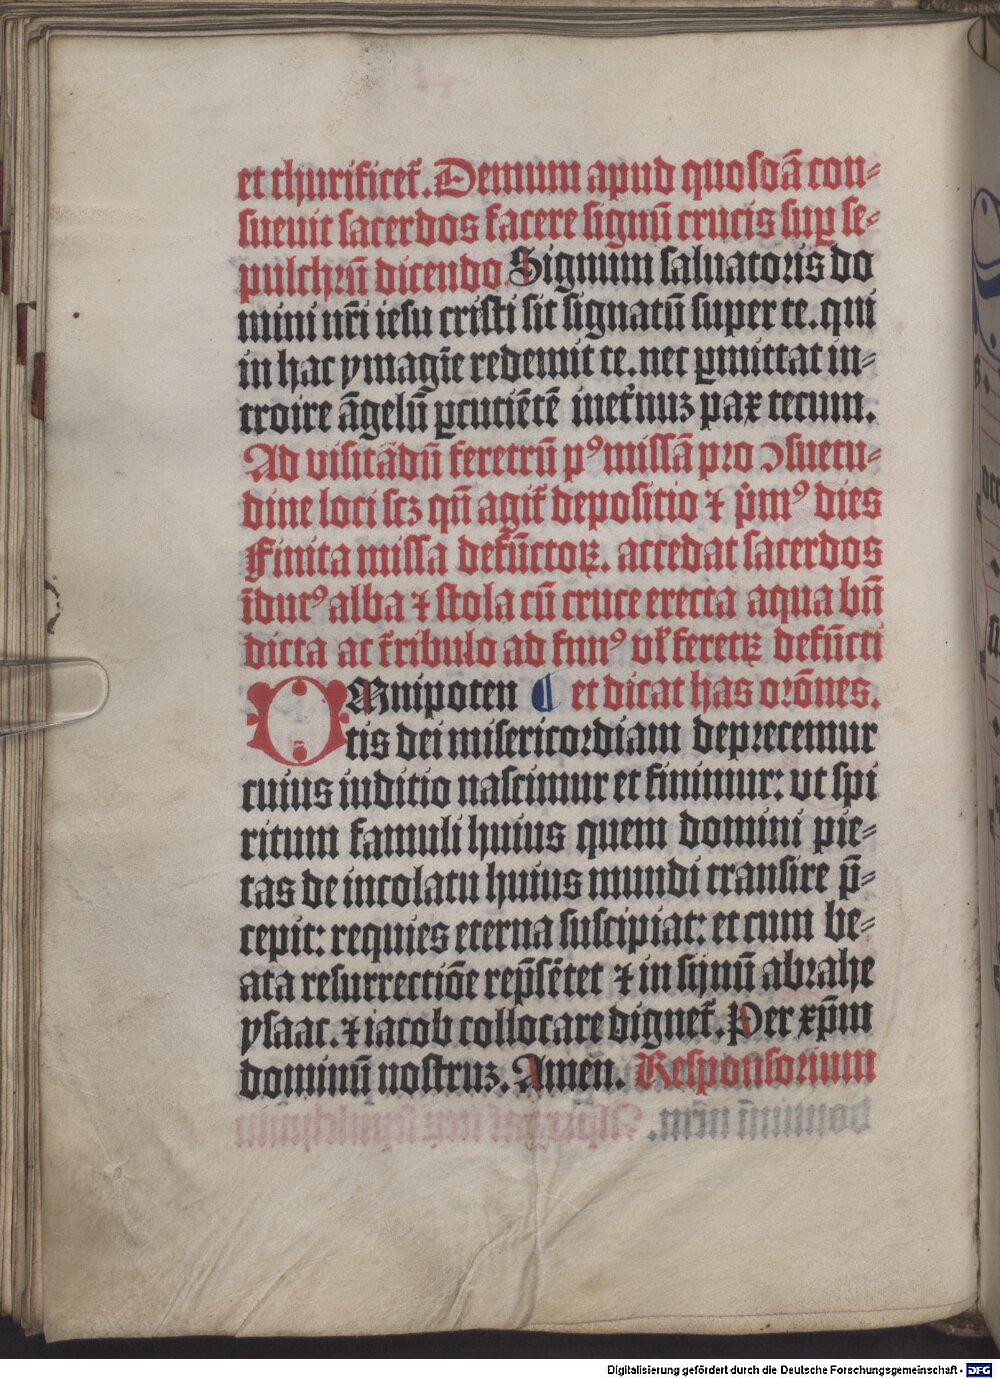 et thurificet᷑. Demum apud quosdā con⸗
sueuit sacerdos facere signū crucis suꝑ se⸗
pulchrū dicendo. Signum saluatoris do
mini nr̄i iesu cristi sit signatū super te. qui
in hac ymagīe redemit te. nec ꝑmittat in⸗
troire āgelū ꝑcutiētē inet᷑nuꝫ pax tecum.
Ad visitādū feretrū pꝰ missā pro ↄsuetu⸗
dine loci scꝫ qn̄ agit᷑ depositio ⁊ p̓mꝰ dies
Finita missa defūctoꝝ. accedat sacerdos
īdutꝰ alba ⁊ stola cū cruce erecta aqua bn̄
dicta ac t᷑ribulo ad funꝰ vl᷑ feretꝝ defūcti
OMnipoten ¶ et dicat has orōnes.
tis dei misericordiam deprecemur
cuius iuditio nascimur et finimur: vt spi
ritum famuli huius quem domini pie⸗
tas de incolatu huius mundi transire p̄⸗
cepit: requies eterna suscipiat: et cum be⸗
ata resurrectiōe rep̄sētet ⁊ in sijnū abrahe
ysaac. ⁊ iacob collocare dignet᷑. Per xp̄m
dominū nostruꝫ. Amen. Responsorium
Digitalisierung gefördert durch die Deutsche Forschungsgemeinschaft - DFG